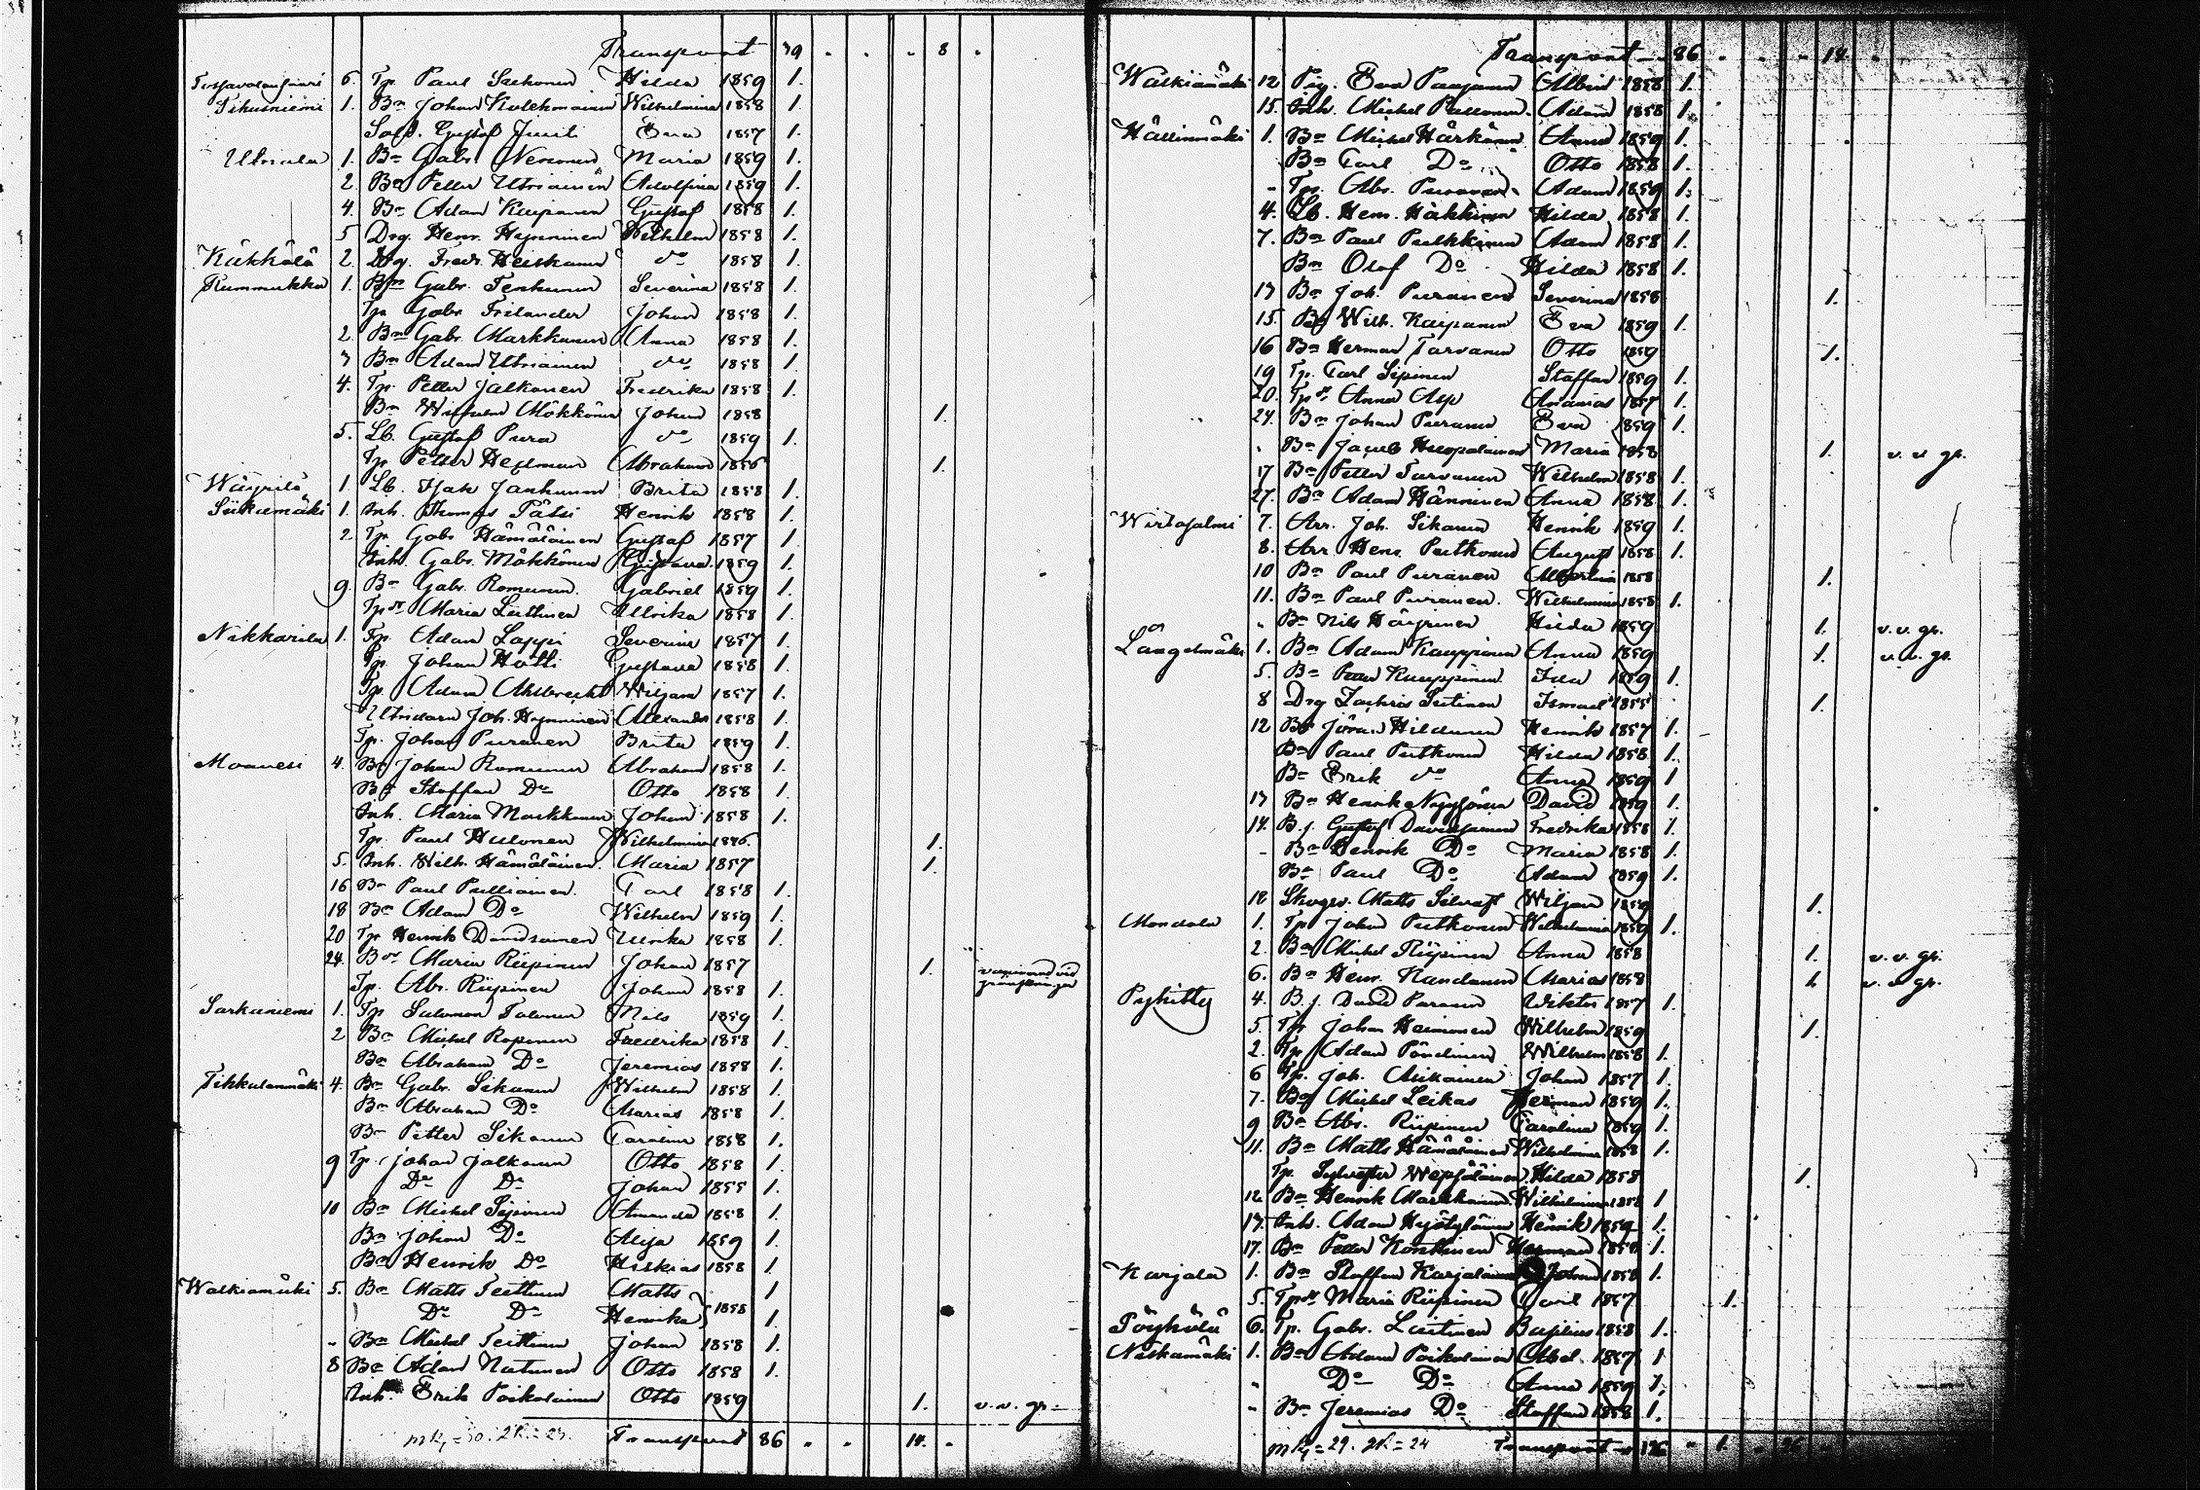 Transport 39 . . . 8 .
6. Tp. Paul Hilda 1859 1.
1. Bn Johan Wilhelmina 1858 1.
Sold. Gustaf Juuti Eva 1857 1.
Utriala 1. Bn Gabr. Maria 1859 1.
2. Bn Petter Utriainen Adolfina 1859 1.
4. Bn Adam Kaipanen Gustaf 1858 1.
5 Drg. Henr. Hynninen Wilhelm 1858 1.
Kükkölä 2. Drg. Fredr. Heiskanen do 1858 1.
Rummukka 1. Bn Gabr. Tenhunen Severina 1858 1.
Tp. Gabr. Frilander Johan 1858 1.
2. Bn Gabr. Markkanen Anna 1858 1.
3 Bn Adam Utriainen do 1858 1.
4. Tp. Petter Jalkanen Fredrika 1858 1.
Bn Mökkönen Johan 1858 1.
5. Lb. Gustaf Pura do 1859 1.
Tp Petter Abraham 1856 1.
Wäyrilä 1. Lb. Isak Brita 1858 1.
Siikamäki 1. Inh. Thomas Pätsi Henrik 1858 1.
2 Tp. Gabr. Hämäläinen Gustaf 1857 1.
Inh. Gabr. Mökkönen Gustava 1859 1.
9. Bn Gabr. Romunen Gabriel 1859 1.
Maria Liitinen Ulrika 1858 1.
Nikkarila 1. Tp. Adam Lappi Severin 1857 1.
Tp. Johan Hotti Gustava 1858 1.
Tp. Adam Wiljam 1857 1.
Joh. Hynninen Alexander 1858 1.
Tp. Johan Puranen Brita 1859 1.
4. Bn Johan Romunen Abraham 1858 1.
Bn Staffan Do Otto 1858 1.
Inh. Maria Markkanen Johan 1858 1.
Tp. Paul Hulonen Wilhelmina 1846. 1.
5. Inh. Wilh. Hämäläinen Maria 1857 1.
16 Bn Paul Pulliainen Carl 1858 1.
18 Bn Adam Do Wilhelm 1859 1.
20 Tp Henrik Davidsainen Ulrika 1858 1.
24. Maria Riipinen Johan 1857 1.
Tp. Abr. Riipinen Johan 1858 1.
Sarkaniemi 1. Tp Salomon Tolonen Nils 1859 1.
2 Bn Michel Roponen Fredrika 1858 1.
Bn Abraham Do Jeremias 1858 1.
Tihkulanmäki 4. Bn Gabr. Sikanen Wilhelm 1858 1.
Bn Abraham Do Marias 1858 1.
Bn Petter Sikanen Carolina 1858 1.
9 Tp. Johan Jalkanen Otto 1858 1.
9 Do Do Johan 1855 1.
10 Bn Michel Amanda 1858 1.
Bn Johan Do 1859 1.
Bn Henrik Do Hiskias 1858 1.
Walkiamäki 5. Bn Matts Teittinen Matts 1
Do Do Henrika 1858 1.
- Bn Michel Teittinen Johan 1858 1.
8 Bn Adam Nutinen Otto 1858 1.
Inh. Erik Poikolainen Otto 1859 1. v. v. gr.
Transport 86 . . 14. .
Transport 86 . . . 14 .
Walkiamäki 12 Pig. Eva Paajanen 1858 1.
15. Inh. Michel Adam 1858 1.
Hällinmäki 1. Bn Michel Härkönen Anna 1859 1.
Bn Carl Do Otto 1858 1.
- Tp. Abr. Adam 1859 1.
4. Lb. Henr. Häkkinen Hilda 1858 1.
7. Bn Paul Pulkkinen Adam 1858 1.
Bn Olof Do Hilda 1858 1.
13 Bn Joh. Puranen Severina 1858 1.
15. Bn Wilh. Kaipanen Eva 1859 1.
16 Bn Herman Tarvanen Otto 1859 1.
19 Tp. Carl Sipinen Staffan 1859 1.
20. Anna Asp Ananias 1857 1.
24. Bn Johan Puranen Eva 1859 1.
. Bn Jacob Maria 1858 1. v. v. gr.
17 Bn Petter Tarvanen Wilhelm 1858 1.
27. Bn Adam Hänninen Anna 1858 1.
7. Arr. Joh. Sikanen Henrik 1859 1.
8. Arr Henr. Putkonen August 1858 1.
10 Bn Paul Puranen Albertina 1858 1.
11. Bn Paul Puranen Wilhelmina 1858 1.
. Bn Nils Häyrinen Hilda 1859 1. v. v. gr.
Längelmäki 1. Bn Adam Kauppinen Anna 1859 1. v. v. gr.
5. Bn Petter Kauppinen Ida 1859 1.
8 Drg Zachris Ismael 1855 1.
12 Bn Jöran Hildunen Henrik 1857 1.
Bn Paul Putkonen Hilda 1858 1.
Bn Erik do Anna 1859 1
13 Bn Henrik Nyyssönen David 1859 1.
14. B.j. Gustaf Davidsainen Fredrika 1858 1.
- Bn Henrik Do Maria 1858 1.
Bn Paul Do Adam 1859 1.
18 Matts Wiljam 1859 1.
Mondola 1. Tp Johan Putkonen Wilhelmina 1859 1.
2. Bn Michel Riipinen Anna 1858 1. v. v. gr.
6. Bn Henr. Nandanen Marias 1858 1. v. v. gr.
Pyhitty 4. B.j. David Paranen Wiktor 1857 1.
5. Tp Johan Haimonen Wilhelm 1859 1.
2. Tp Adam Pöndinen Wilhelm 1858 1.
6 Tp. Joh. Asikainen Johan 1857 1.
7. Bn Michel Leikas Herman 1859 1.
9 Bn Abr. Riipinen Carolina 1859 1.
11. Bn Matts Hämäläinen Wilhelmina 1858 1.
Tp. Sylvester Wepsäläinen Hilda 1858 1.
12 Bn Henrik Markkanen Wilhelmina 1858 1
13. Inh. Adam Henrik 1859 1.
17. Bn Petter Konttinen Herman 1858 1.
Karjala 1. Bn Staffan Karjalainen Johan 1858 1.
5. Maria Riipinen 1857 1.
Pöyhölä 6. Tp. Gabr. Liitinen Basilius 1858 1.
Niskamäki 1. Bn Adam Poikolainen Abel 1857 1
" Do Do Anna 1859 1.
- Bn Jeremias Do Staffan 1858 1.
Transport 126 . 1. . 26 .